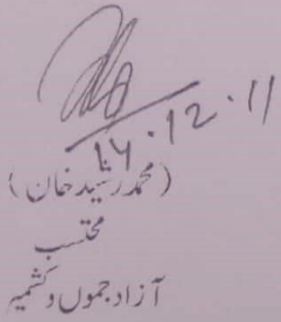 16.12.11
(محمد رشید خان)
محتسب
آزاد جموں و کشمیر